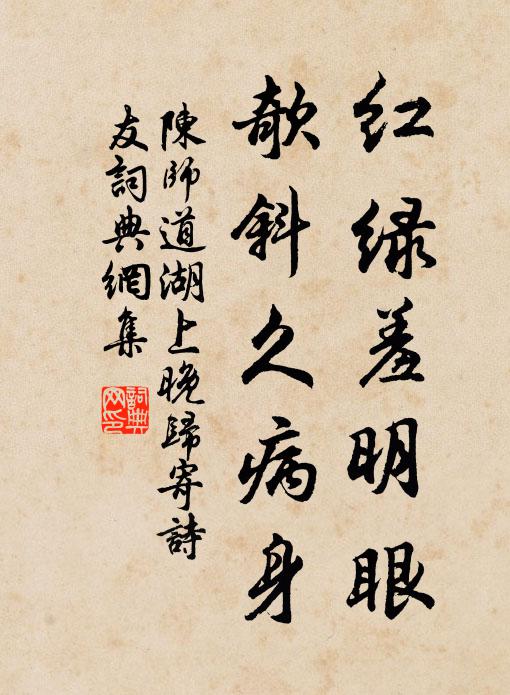 红绿羞明眼
欹斜久病身
陳師道湖上晚歸寄詩
友詞典網集
詞典網印